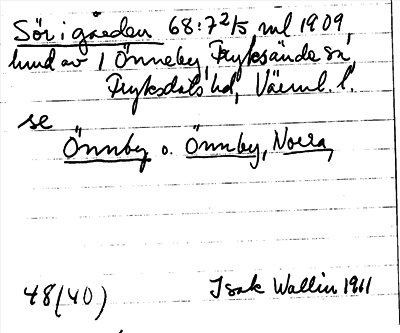 Sör i gården 68:7²/5 ml 1909,
hmd av 1 Önneby, Fryksände sn,
Fryksdals hd, Värml. l.
se
Önnby o. Önnby, Norra,
48(40) Isak Wallin 1911